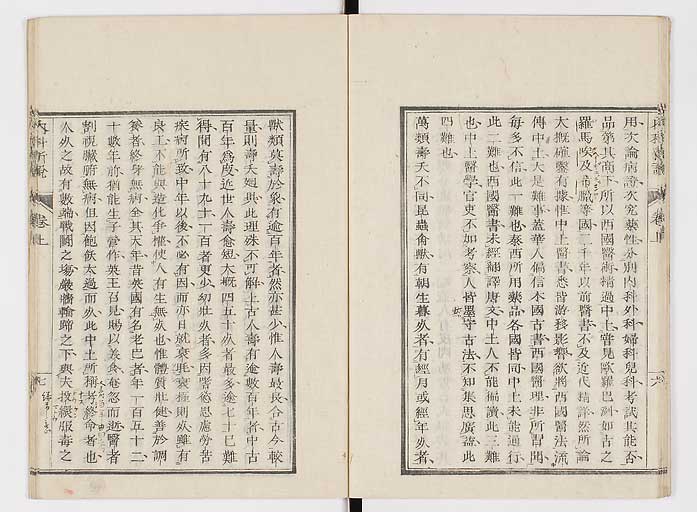 用次論病證次究藥性分別內科外科婦科兒科考試其能否
品第其高下所以西國醫術精過中土嘗見歐羅巴洲如古之
羅馬及希臘等國二千年以前醫書不及近代精詳然所論
大概確鑿有據惟中土醫書悉皆游移影響欲將西國醫法流
傳中土大是難事蓋華人偏信本國古書西國醫理非所習聞
每多不信此一難也泰西所用藥品各國皆同中土未能通行
此二難也西國醫書未經翻譯唐文中土人不能偏讀此三難
也中土醫學官吏不加考察人皆墨守古法不知集思廣議此
四難也
萬類壽夭不同昆蟲禽獸有朝生暮死者有經月或經年死者
獸類與壽於象有逾百年者然亦甚少惟人壽最長合古今較
量則壽夭迥與此理殊不可解上古人壽有逾數百年者中古
百年為度近世人壽愈短大概四五十死者最多逾七十已難
得間有八十九十一百者更少幼壯死者多因嗜慾思慮勞苦
疾病所致中年以後不必有因而亦日就衰耗衰極則死雖有
良工不能與造化爭權使人有生無死也惟體質壯健善於調
養者終身無病全其天年昔英國有名老巴者年一百五十二
十數年前猶能生子嘗作英王召見賜以美食奄忽而逝醫者
割視臟腑無病但因飽飫太過而死此中土所稱考終命者也
人死之故有數端戰鬭之場巖牆輪蹄之下與夫投繯服毒之
內科新說
卷上
七